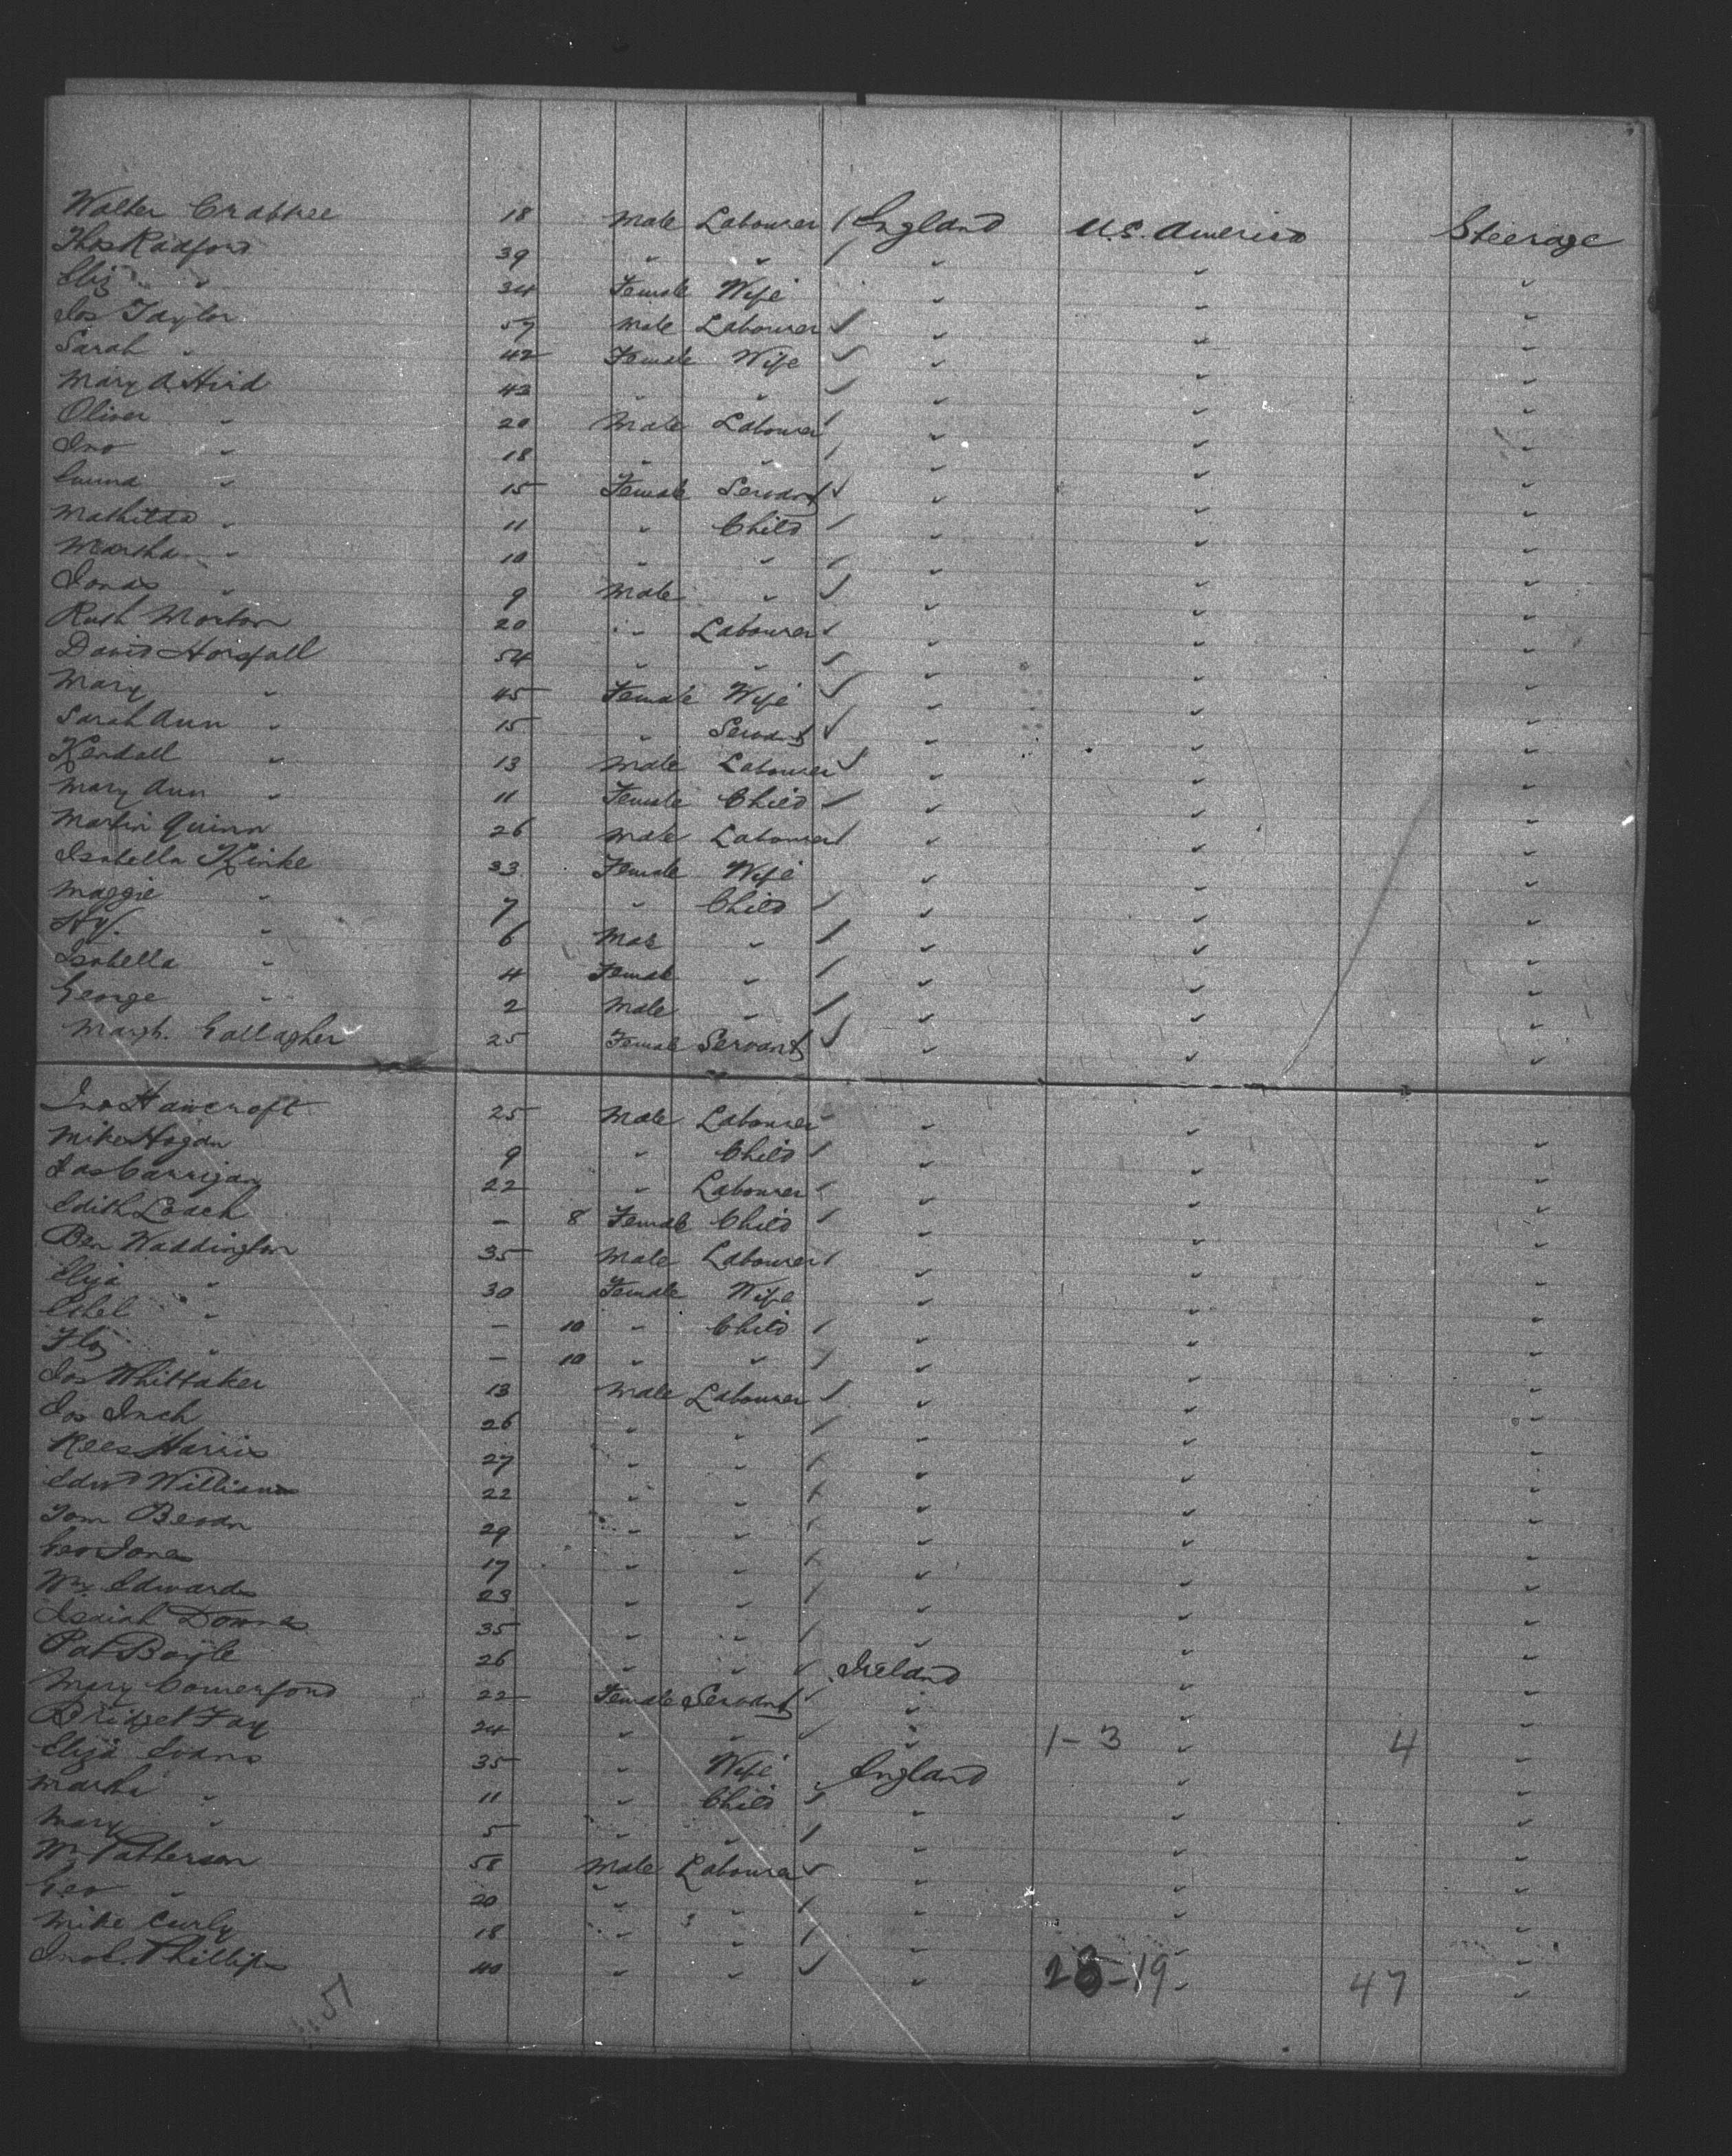 Walter Crabtree 18 Male Labourer England U.S. America Steerage
Thos Radford 39 " " " " "
Eliz " 34 Female Wife " " "
Jos Taylor 57 Male Labourer " " "
Sarah " 42 Female Wife " " "
Mary A. Hird 43 " " " " "
Oliver " 20 Male Labourer " " "
Jno " 18 " " " " "
Emma " 15 Female Servant " " "
Mathilda " 11 " Child " " "
Martha " 10 " " " " "
Jonas " 9 Male " " " "
Rush Morton 20 " Labourer " " "
David Horsfall 54 " " " " "
Mary " 45 Female Wife " " "
Sarah Ann " 15 " Servant " " "
Kendall " 13 Male Labourer " " "
Mary Ann " 11 Female Child " " "
Martin Quinn 26 Male Labourer " " "
Isabella Kinke 33 Female Wife " " "
Maggie " 7 " Child " " "
Hy. " 6 Male " " " "
Isabella " 4 Female " " " "
George " 2 Male " " " "
Margh. Gallagher 25 Female Servant " " "
Jno Hawcroft 25 Male Labourer " " "
Mike Hogan 9 " Child " " "
Jas Carrigan 22 " Labourer " " "
Edith Loach – 8 Female Child " " "
Ben Waddington 35 Male Labourer " " "
Eliza " 30 Female Wife " " "
Ethel " – 10 " Child " " "
Floy " – 10 " " " " "
Jos Whittaker 13 Male Labourer " " "
Jos Inch 26 " " " " "
Rees Harris 27 " " " " "
Edwd Williams 22 " " " " "
Tom Bevan 29 " " " " "
Geo Jones 17 " " " " "
Wm. Edwards 23 " " " " "
Isaiah Downes 35 " " " " "
Pat Boyle 26 " " Ireland " "
Mary Comerford 22 Female Servant " " "
Bridget Fay 24 " " " 1-3 " 4 "
Eliza Evans 35 " Wife England " "
Martha " 11 " Child " " "
Mary " 5 " " " " "
Wm Patterson 58 Male Labourer " " "
Geo " 20 " " " " "
Mike Curly 18 " " " " "
Jno C. Phillips 40 " " " 28-19 " 47 "
51